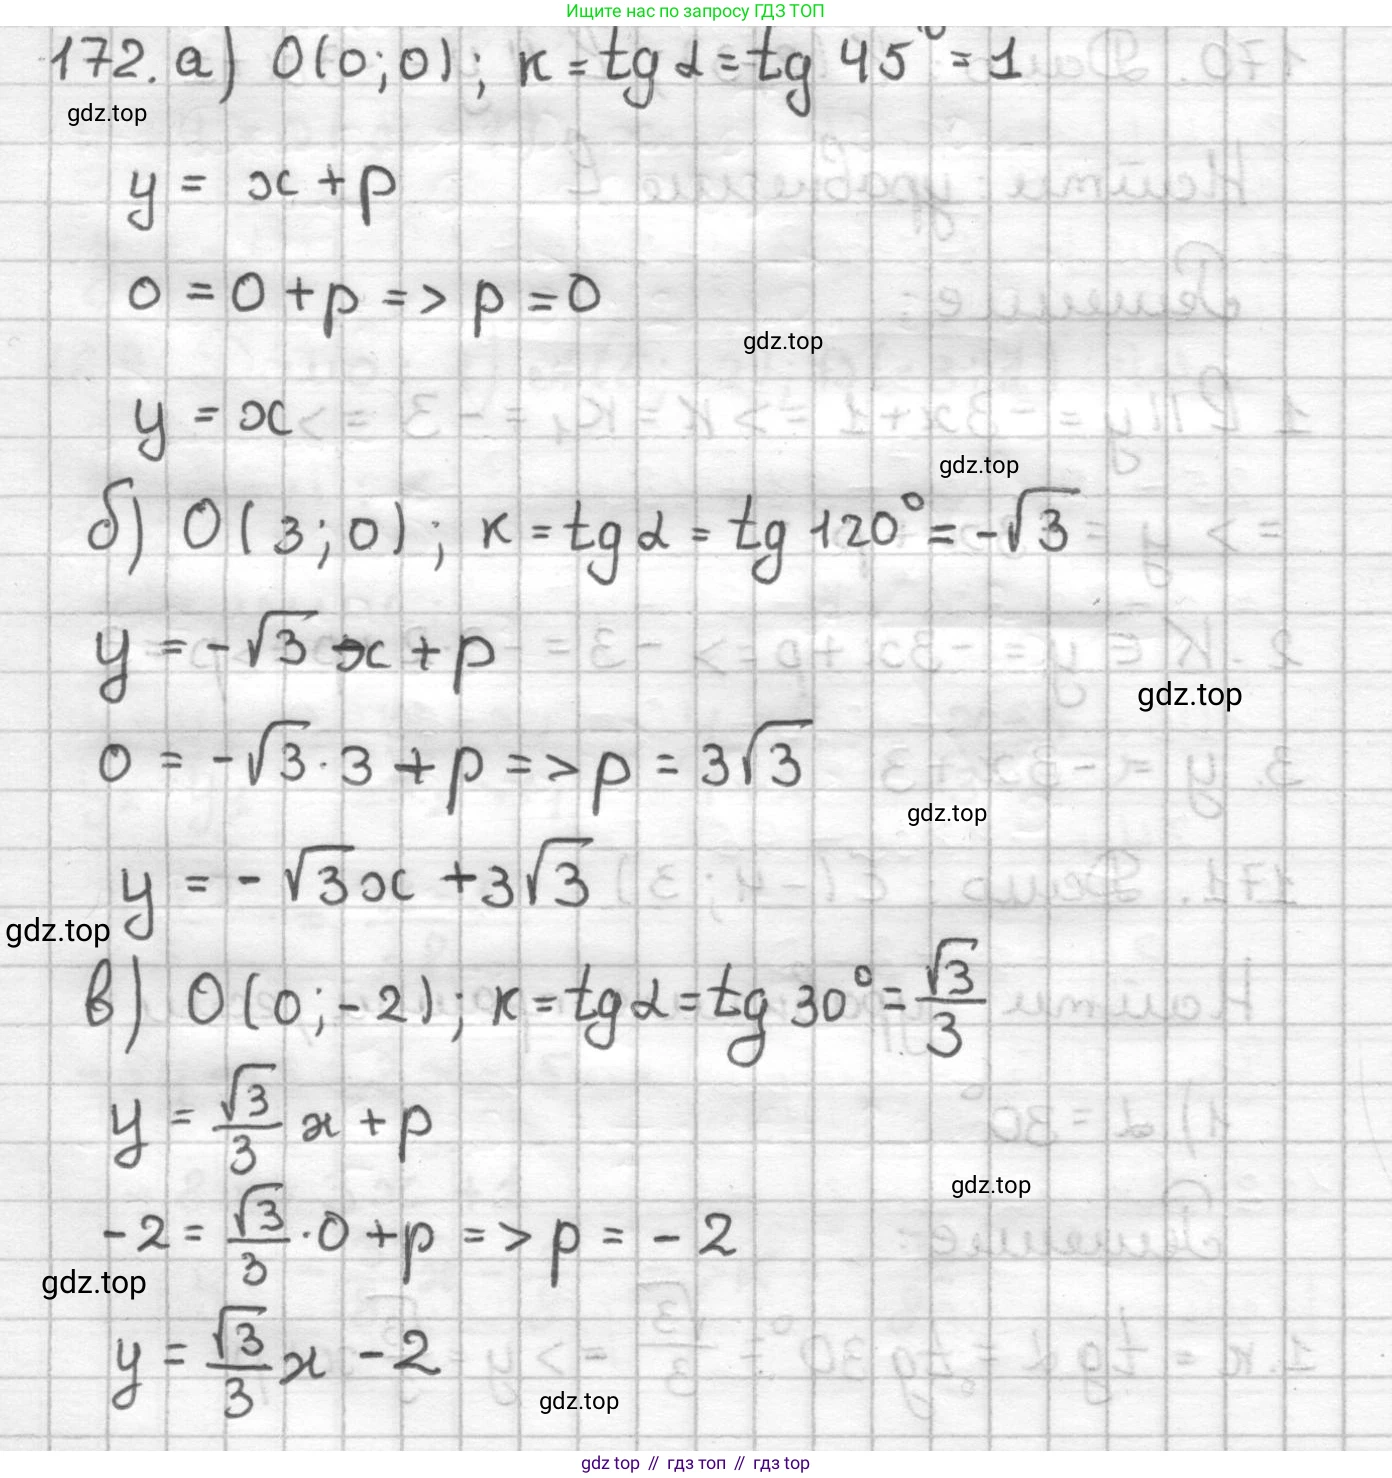 Ищите нас по запросу ГДЗ ТОП
172. а) O(0;0); к = tg α = tg 45° = 1
gdz.top
y = x + p
0 = 0 + p => p = 0
gdz.top
y = x
gdz.top
б) O(3;0); к = tg α = tg 120° = -√3
y = -√3 x + p
gdz.top
0 = -√3 · 3 + p => p = 3√3
gdz.top
y = -√3x + 3√3
gdz.top
в) O(0;-2); к = tg α = tg 30° = √3/3
y = √3/3 x + p
gdz.top
-2 = √3/3 · 0 + p => p = -2
gdz.top
y = √3/3 x - 2
gdz.top
gdz top // гдз топ // гдз top